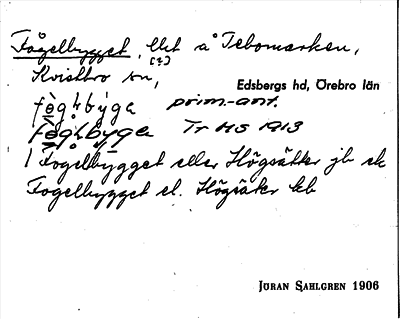 Fågelbygget, Utt å Tebomarken,
(?)
Kvistbro sn,
Edsbergs hd, Örebro län
prim.-ant.
Tr HS 1913
1 Fogelbygget eller Högsätter jb sk
Fogelbygget el. Högsäter kb
JÖRAN SAHLGREN 1906